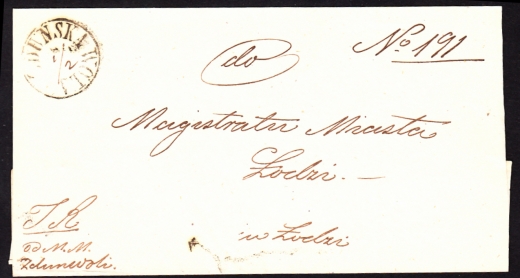 ZDUŃSKA WOLA
7/2
No 191
do
Magistratu Miasta
Łodzi. —
w Łodzi
I R
od M. M.
Zdunwoli.